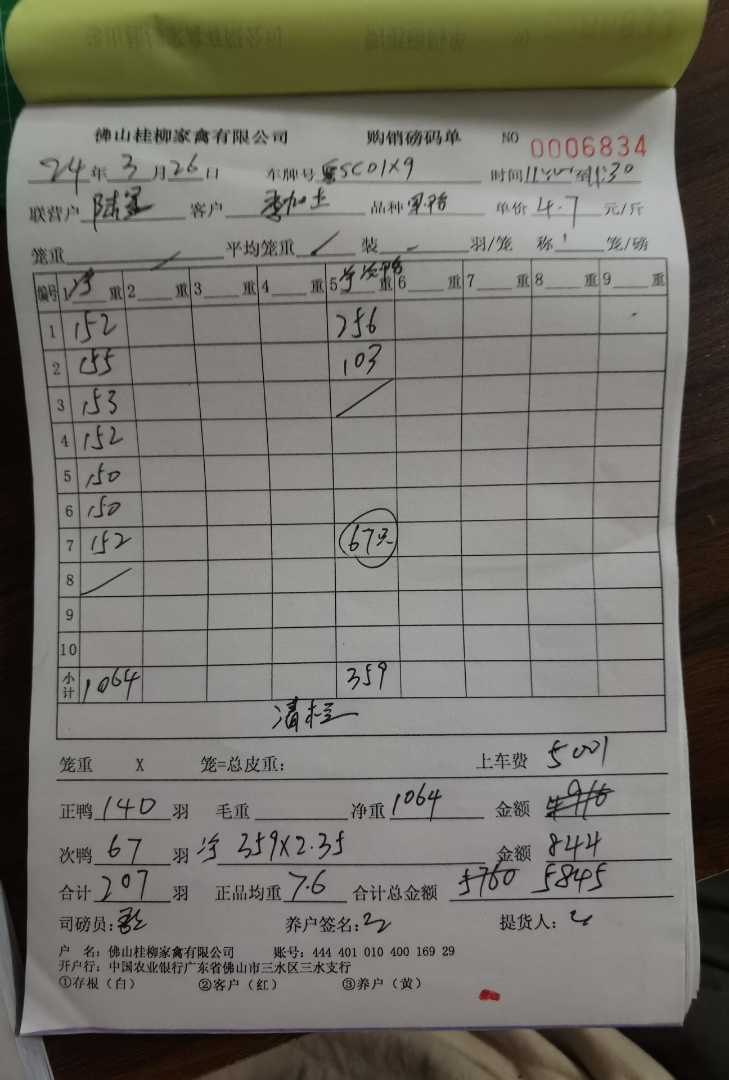 佛山桂柳家禽有限公司 购销磅码单 NO 0006834
24年 3月26日 车牌号 SC01X9 时间11:00至11:30
联营户 陆 客户 李加土 品种 单价 4.7 元/斤
笼重 平均笼重 装 羽/笼 称 笼/磅
编号 1净重 2 重 3 重 4 重 5净次鸭重 6 重 7 重 8 重 9 重
1 152 256
2 155 103
3 153
4 152
5 150
6 150
7 152 67只
8
9
10
小计 1064 359
清栏
笼重 X 笼=总皮重: 上车费 5001
正鸭 140 羽 毛重 净重 1064 金额
次鸭 67 羽 净 359X2.35 金额 844
合计 207 羽 正品均重 7.6 合计总金额 5760 5845
司磅员: 养户签名: 提货人:
户 名: 佛山桂柳家禽有限公司 账号: 444 401 010 400 169 29
开户行: 中国农业银行广东省佛山市三水区三水支行
①存根（白） ②客户（红） ③养户（黄）